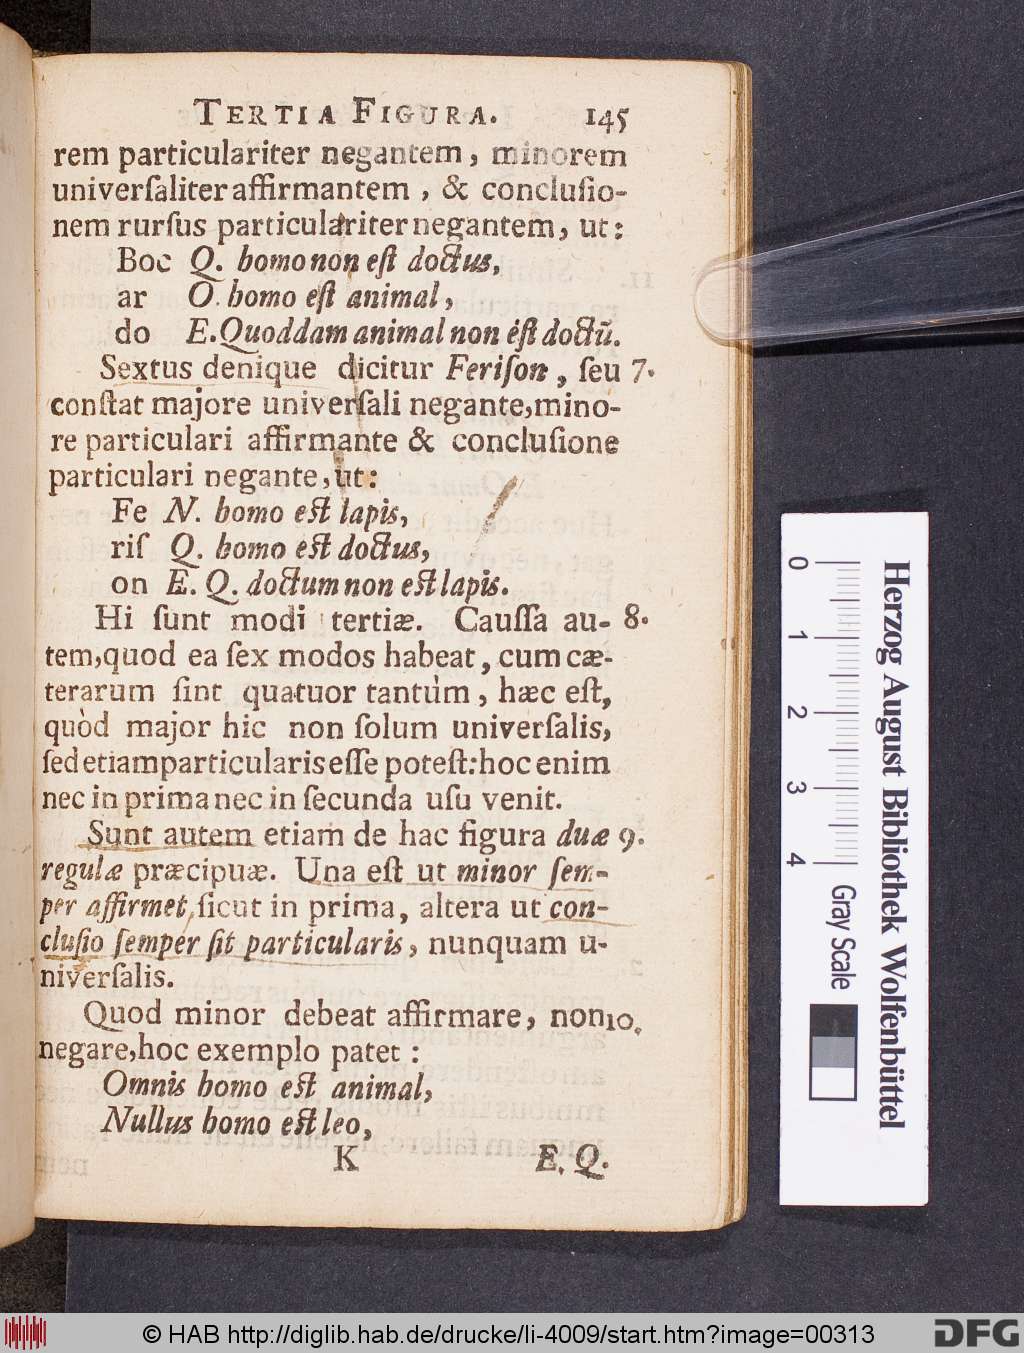 TERTIA FIGURA. 145
rem particulariter negantem, minorem
univerſaliter affirmantem, & concluſio-
nem rurſus particulariter negantem, ut:
Boc Q. homo non eſt doctus,
ar O. homo eſt animal,
do E. Quoddam animal non eſt doctū.
Sextus denique dicitur Feriſon, ſeu 7.
conſtat majore univerſali negante, mino-
re particulari affirmante & concluſione
particulari negante, ut:
Fe N. homo eſt lapis,
riſ Q. homo eſt doctus,
on E. Q. doctum non eſt lapis.
Hi ſunt modi tertiæ. Cauſſa au- 8.
tem, quod ea ſex modos habeat, cum cæ-
terarum ſint quatuor tantùm, hæc eſt,
quòd major hic non ſolum univerſalis,
ſed etiam particularis eſſe poteſt: hoc enim
nec in prima nec in ſecunda uſu venit.
Sunt autem etiam de hac figura duæ 9.
regulæ præcipuæ. Una eſt ut minor ſem-
per affirmet, ſicut in prima, altera ut con-
cluſio ſemper ſit particularis, nunquam u-
niverſalis.
Quod minor debeat affirmare, non 10.
negare, hoc exemplo patet:
Omnis homo eſt animal,
Nullus homo eſt leo,
K E. Q.
0 1 2 3 4 Gray Scale
Herzog August Bibliothek Wolfenbüttel
© HAB http://diglib.hab.de/drucke/li-4009/start.htm?image=00313
DFG